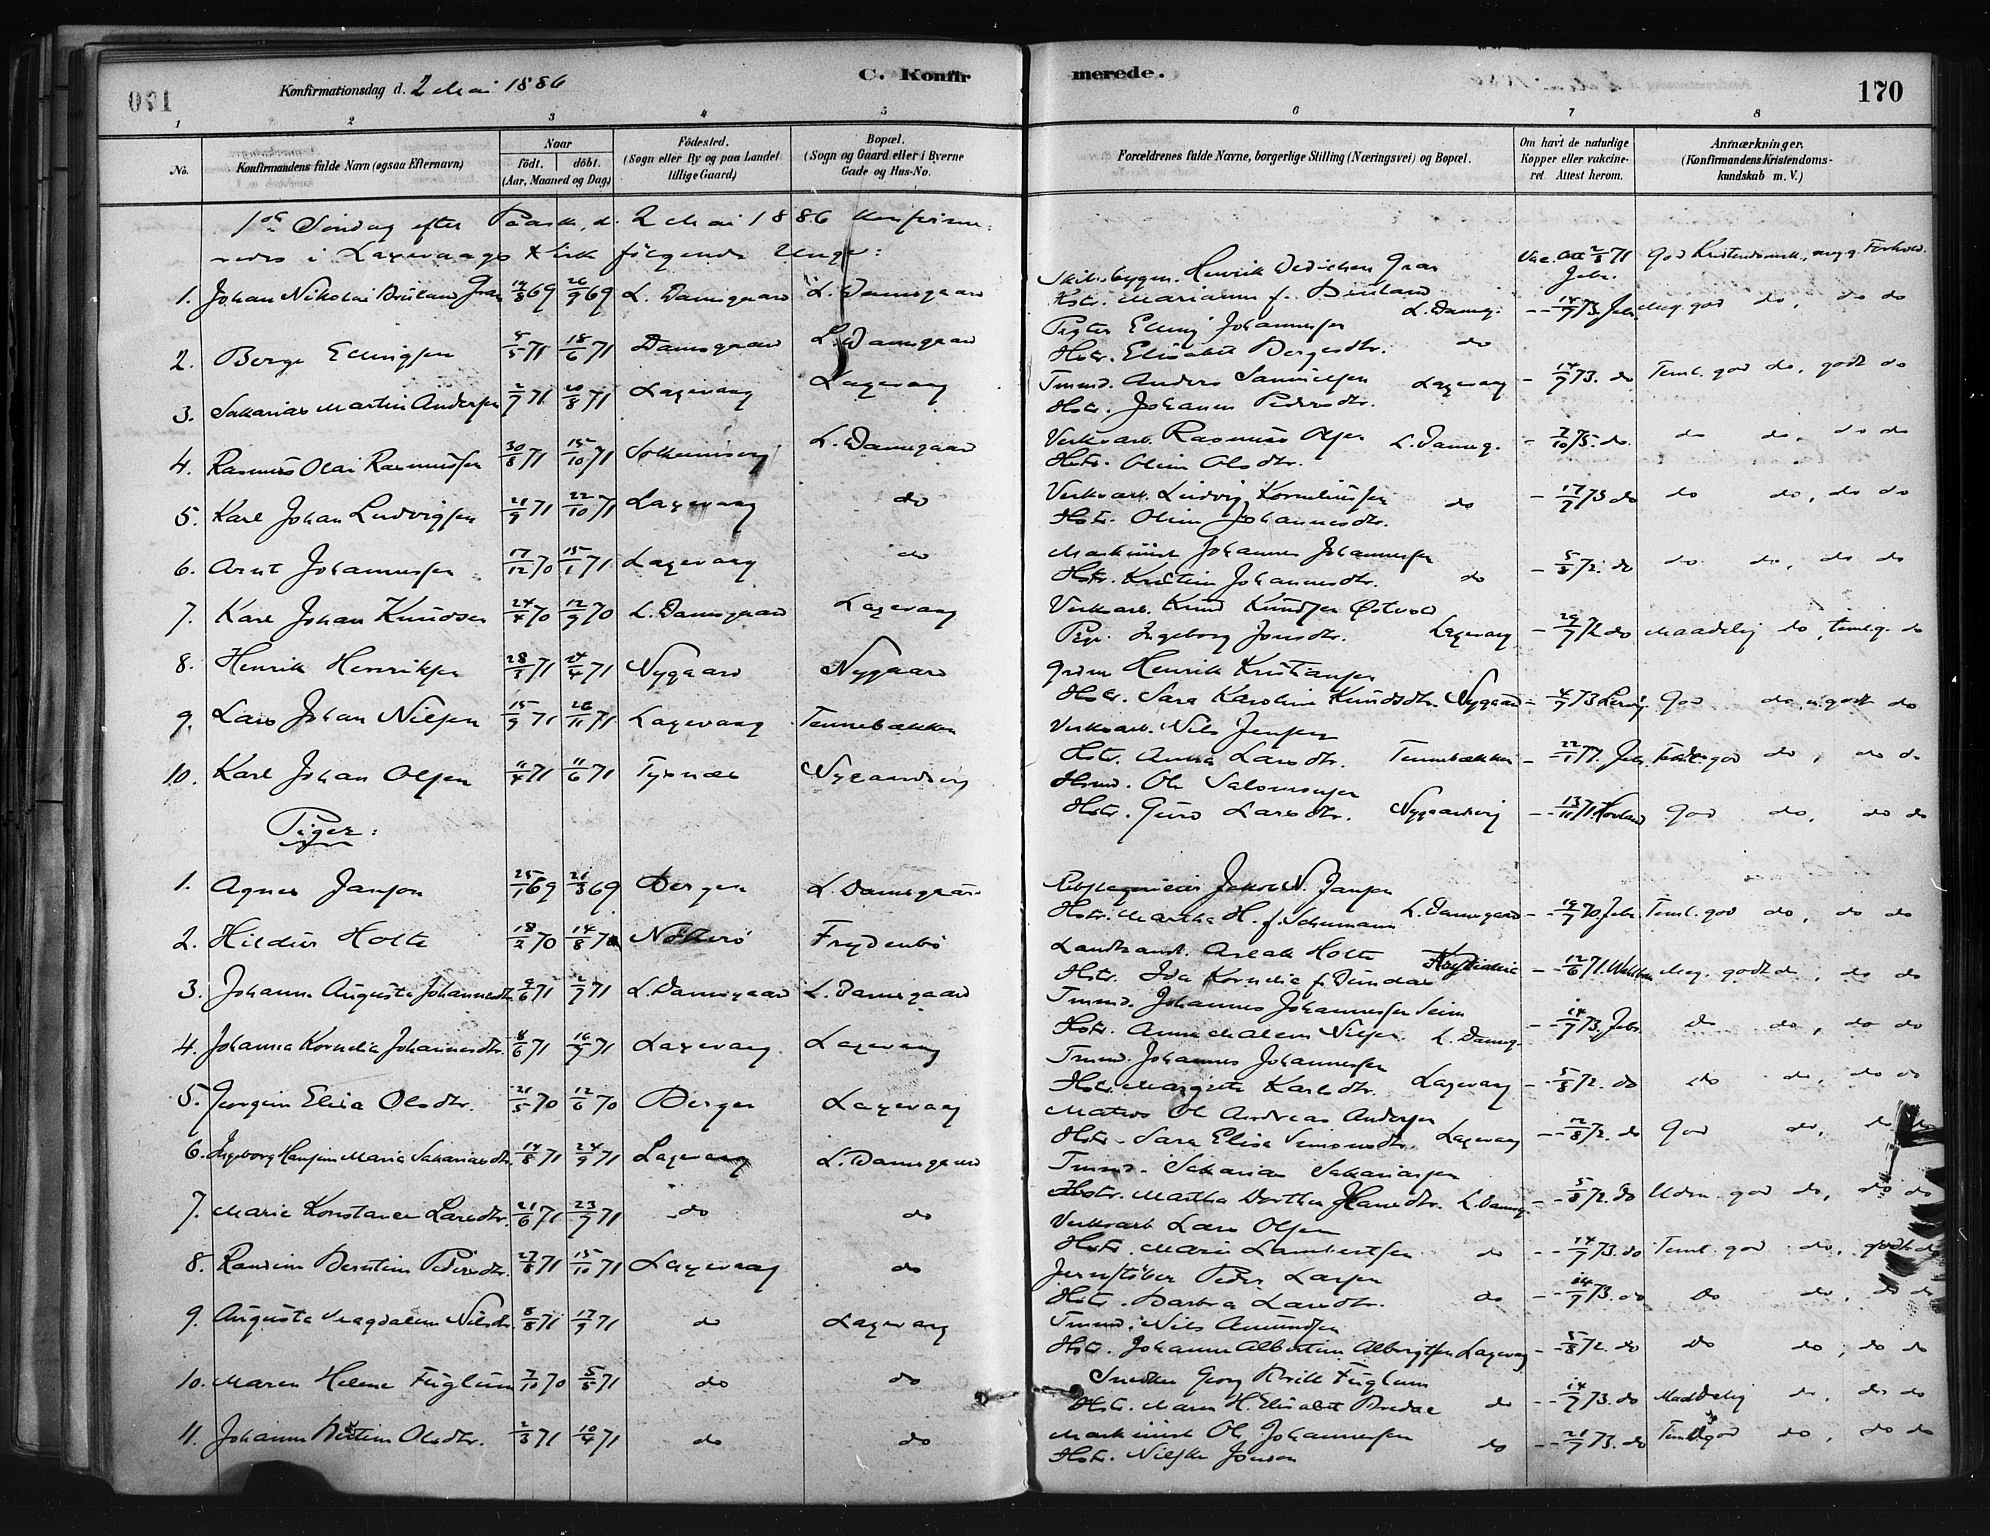 Konfirmationsdag d. 2 Mai 1886
C. Konfirmerede.
170
1 2 3 4 5 6 7 8
No.
Konfirmandens fulde Navn (ogsaa Efternavn)
Naar
födt. döbt.
(Aar, Maaned og Dag)
Födested.
(Sogn eller By og paa Landet
tillige Gaard)
Bopæl.
(Sogn og Gaard eller i Byerne
Gade og Hus-No.
Forældrenes fulde Navne, borgerlige Stilling (Næringsvei) og Bopæl.
Om havt de naturlige
Kopper eller vakcine-
ret. Attest herom.
Anmærkninger.
(Konfirmandens Kristendoms-
kundskab m. V.)
1ste Söndag efter Paaske, d. 2 Mai 1886 konfirme-
redes i Laxevaags Kirke følgende Unge:
1. Johan Nikolai Bruland Gran 69 26/9 69 L. Damsgaard L. Damsgaard
Henrik Dedichen Gran
Hstr. Marianne f. Bruland L. Damsg.
2. Berge Ellingsen 5/5 71 18/6 71 Damsgaard L. Damsgaard
Elling Johannessen
Hstr. Elisabet Bergesdtr. do 14/9 73. Meg. god do, do do
3. Sakarias Martin Andersen 2/7 71 20/8 71 Laxevaag Laxevaag
Tmmd. Anders Samuelsen Laxevaag
Hstr. Johanne Pedersdtr. 14/9 73. do Teml. god do, godt do
4. Rasmus Olai Rasmussen 30/8 71 15/10 71 Solheimsvig L. Damsgaard
Verksarb. Rasmus Olsen L. Damsg. 7/10 75. do. do do, do do
Hstr. Oline Olsdtr.
5. Karl Johan Ludvigsen 21/9 71 22/10 71 Laxevaag do
Verksarb. Ludvig Korneliussen do 17/9 73 do do do, do do
Hstr. Oline Johannesdtr.
6. Arnt Johannessen 17/12 70 15/1 71 Laxevaag do
Maskinist Johannes Johannessen
Hstr. Kristine Johannesdtr. do 5/8 72. do do do, do do
7. Karl Johan Knudsen 24/4 70 12/9 70 L. Damsgaard Laxevaag
Verksarb. Knud Knudsen Østvold
Pige. Ingeborg Jonsdtr. Laxevaag 29/9 72 do Maadelig do, temlig. do
8. Henrik Henriksen 28/1 71 24/4 71 Nygaard Nygaard
Henrik Kristiansen
Hstr. Sara Karoline Knudsdtr. Nygaard God do, godt do
9. Lars Johan Nilsen 15/9 71 26/11 71 Laxevaag Tennebækken
Verksarb. Nils Jensen
Hstr. Anna Larsdtr. Tennebækken god do, do do
10. Karl Johan Olsen 11/4 71 11/6 71 Tysnæs Nygaardsvig
Ole Salomonsen
Hstr. Guro Larsdtr. Nygaardsvig 13/11 71. Hovland God do, do do
Piger:
1. Agnes Janson 25/1 69 21/3 69 Bergen L. Damsgaard
Jakob N. Jansen
Hstr. Martha H. f. Schumann L. Damsgaard 19/9 70. Teml. god do, do do
2. Hildur Holte 18/2 70 14/8 70 Nötterö Frydenbö
Landhand. Aslak Holte
Hstr. Ida Kornelia f. 12/6 71. Meg. godt do, do do
3. Johanne Augusta Johannesdtr. 4/6 71 2/7 71 L. Damsgaard L. Damsgaard
Tmmd. Johannes Johannessen Seim
Hstr. Anne Malene Nilsen L. Damsg. 14/9 73. do do, do do
4. Johanna Kornelia Johannesdtr. 8/6 71 16/7 71 Laxevaag. Laxevaag
Tmmd. Johannes Johannessen
Hstr. Margrete Karlsdtr. Laxevaag 5/8 72. do do do, do do
5. Jorgine Elisa Olsdtr. 21/5 70 12/6 70 Bergen Laxevaag
Matros Ole Andreas Andersen
Hstr. Sara Elisa Simonsdtr. Laxevaag 12/8 72. do God do, do do
6. Ingeborg Hansine Maria Sakariasdtr. 14/8 71 24/9 71 Laxevaag L. Damsgaard
Tmmd. Sakarias Sakariassen
Hstr. Martha Dorthea Hansdtr. L. Damsg. 5/8 72. do god do, do do
7. Marie Konstance Larsdtr. 21/6 71 23/7 71 do do
Verksarb. Lars Olsen
Hstr. Marie Lambertsen do 14/9 73. do Teml. god do, godt do
8. Randine Berntine Pedersdtr. 27/8 71 15/10 71 Laxevaag do
Jernstöber Peder Larsen
Hstr. Barbra Larsdtr. do 14/9 73. do do do, do do
9. Augusta Magdalene Nilsdtr. 8/8 71 17/9 71 do Laxevaag
Tmmd. Nils Amundsen
Hstr. Johanne Albertine Albrigtsen Laxevaag 5/8 72. do do do, do do
10. Maren Helene Fuglum 7/10 70 5/5 71 do do
Smeden Georg Fuglum
Hstr. Maren H. Elisabet Bredal do 14/9 73. do Maadelig do, do do
11. Johanne Bertine Olsdtr. 2/3 71 10/4 71 do do
Maskinist Ole Johannessen
Hstr. Nilske Jonsen do 21/9 73. do Teml. god do, do do